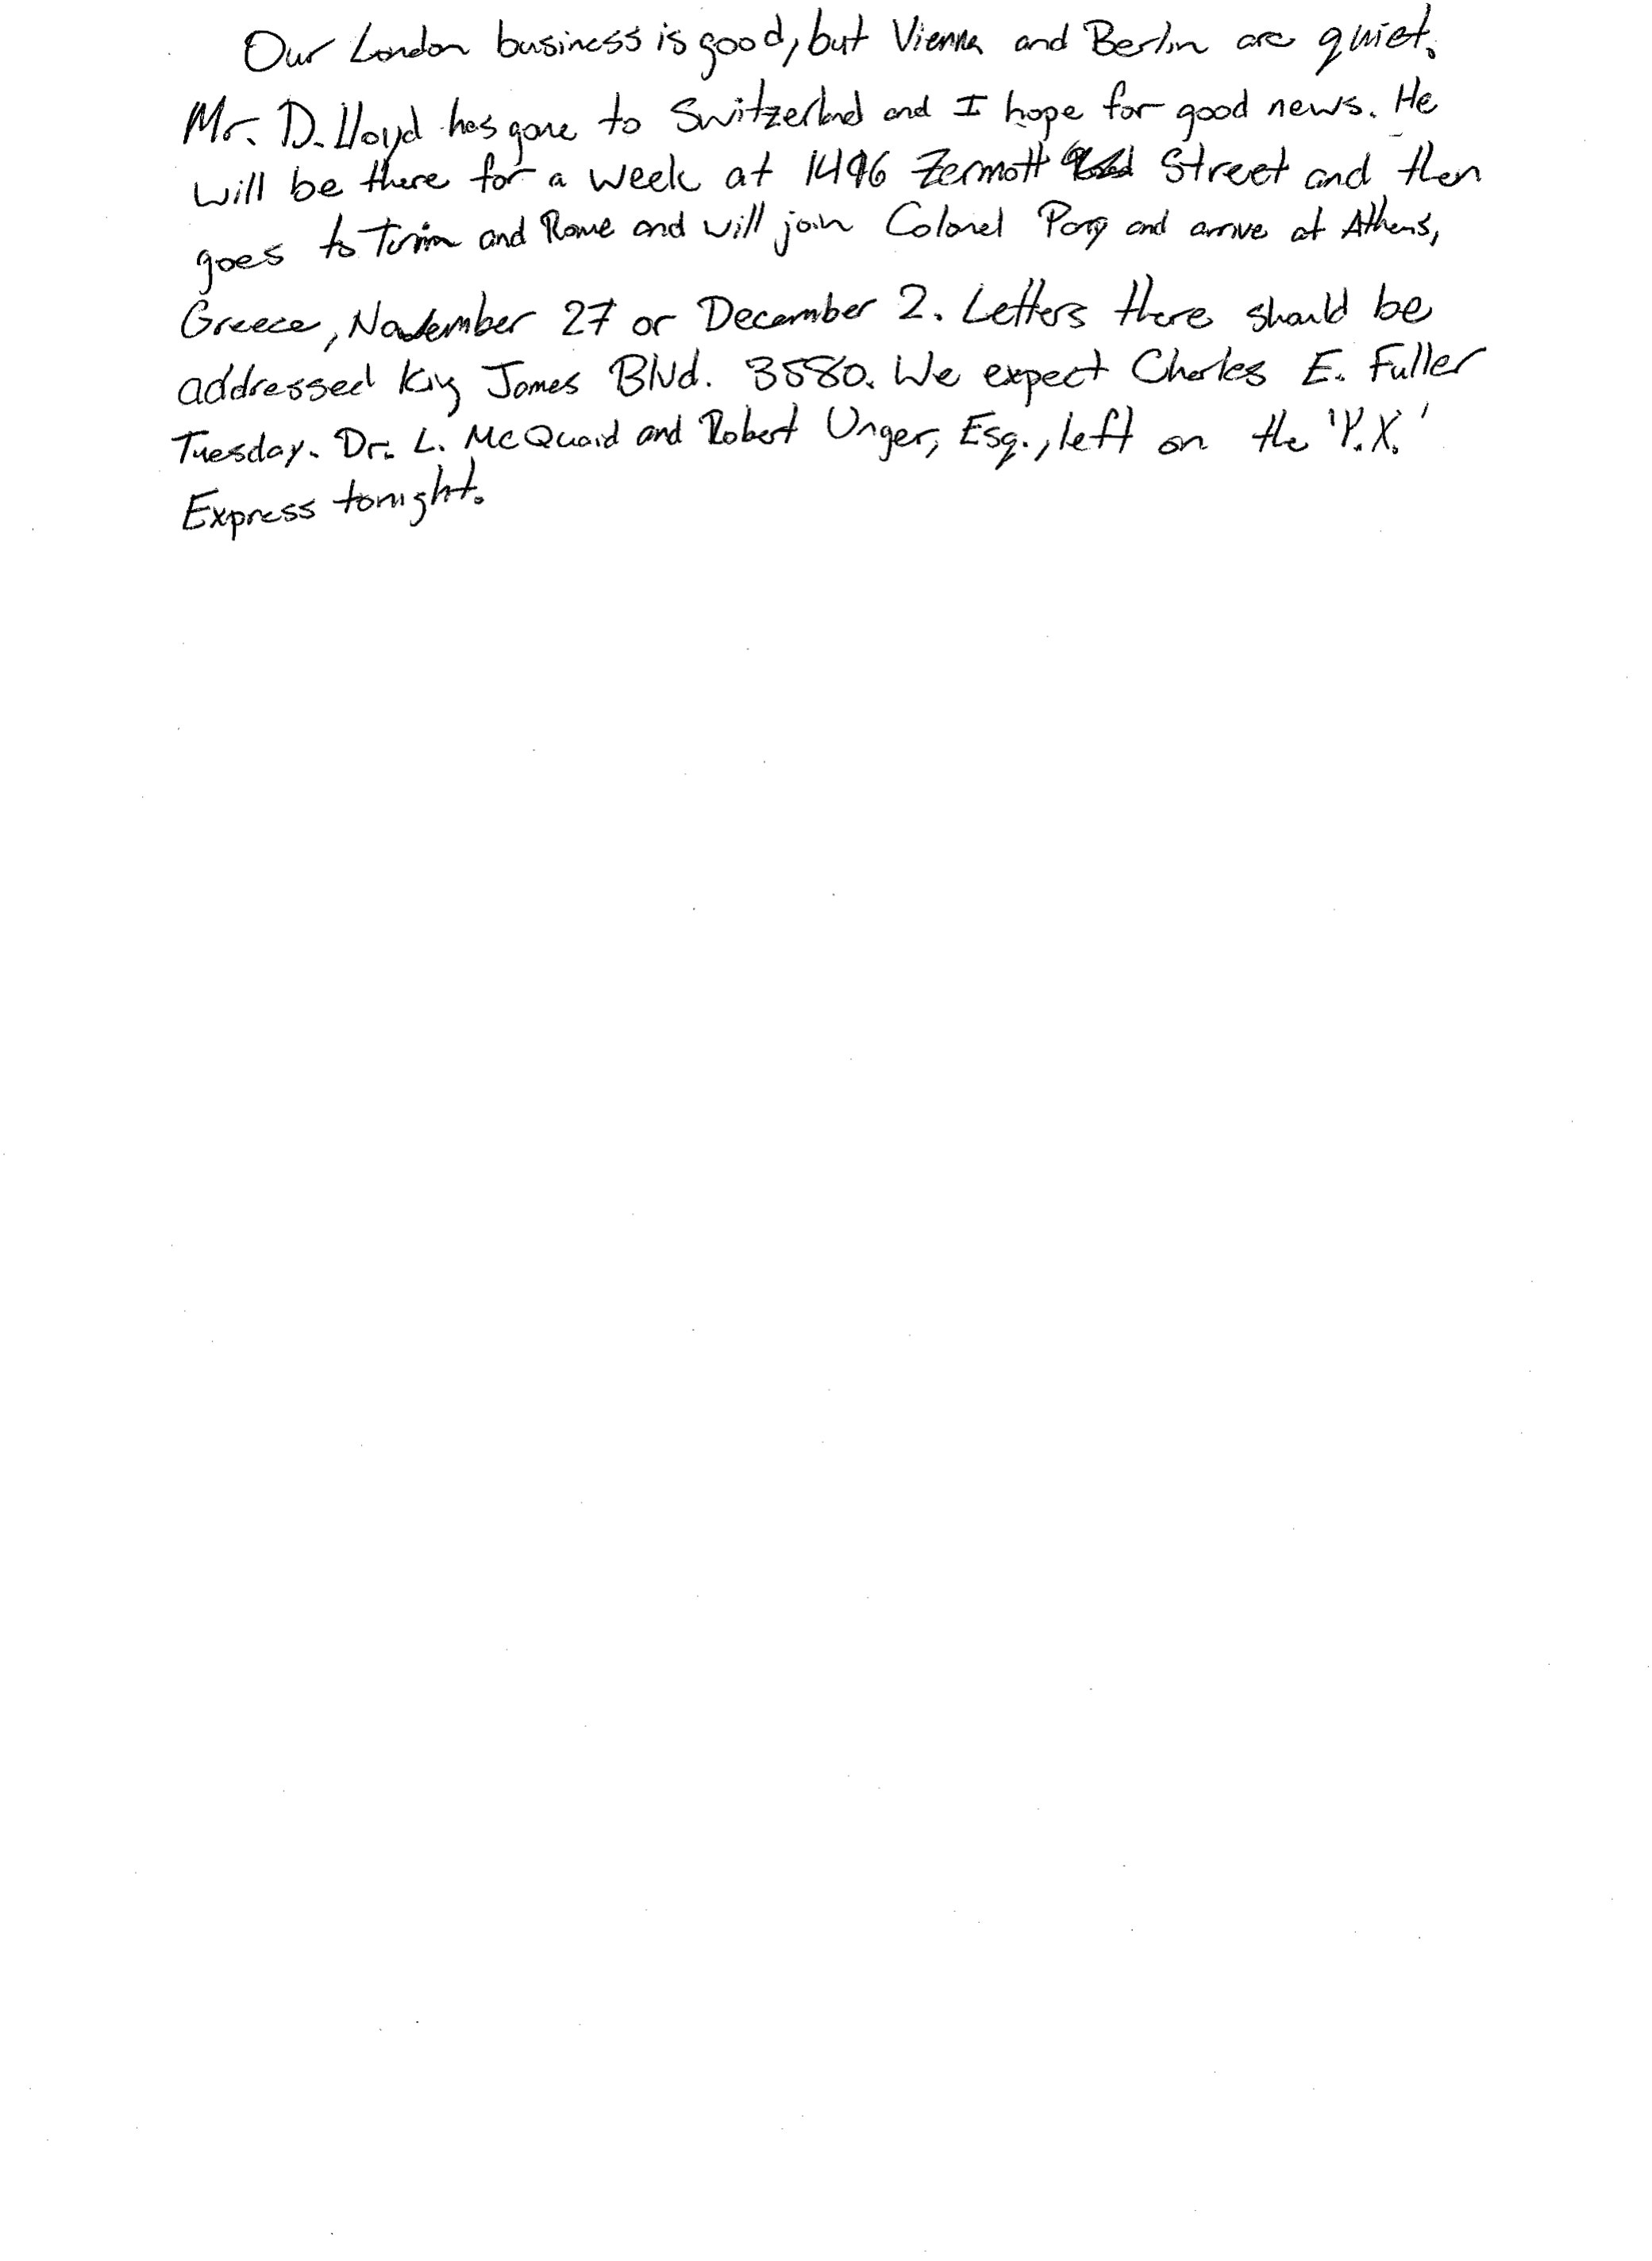 Our London business is good, but Vienna and Berlin are quiet.
Mr. D. Lloyd has gone to Switzerland and I hope for good news. He
will be there for a week at 1496 Zermott Street and then
goes to Turin and Rome and will join Colonel Parry and arrive at Athens,
Greece, November 27 or December 2. Letters there should be
addressed King James Blvd. 3580. We expect Charles E. Fuller
Tuesday. Dr. L. McQuaid and Robert Unger, Esq., left on the 'Y.X.'
Express tonight.